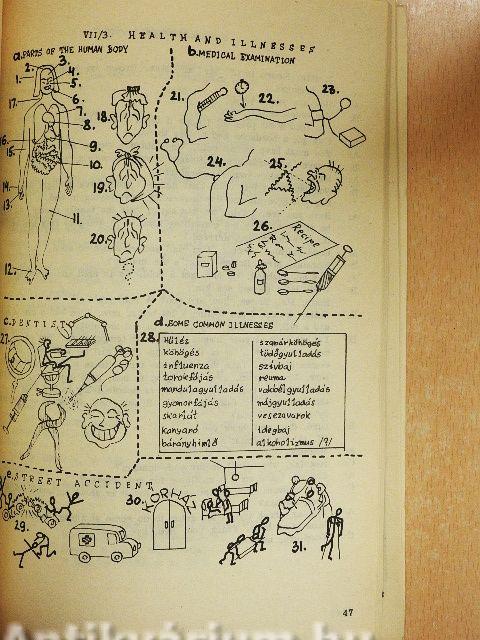 VII/3. HEALTH AND ILLNESSES
a. PARTS OF THE HUMAN BODY
b. MEDICAL EXAMINATION
1.
2.
3.
4.
5.
6.
7.
8.
9.
10.
11.
12.
13.
14.
15.
16.
17.
18.
19.
20.
21.
22.
23.
24.
25.
26.
Recipe
c. DENTIST
27.
d. SOME COMMON ILLNESSES
28.
Hűlés
köhögés
influenza
torokfájás
mandulagyulladás
gyomorfájás
skarlát
kanyaró
bárányhimlő
szamárköhögés
tüdőgyulladás
szívbaj
reuma
vakbélgyulladás
májgyulladás
vesezavarok
idegbaj
alkoholizmus /?/
e. STREET ACCIDENT
29.
30.
KÓRHÁZ
31.
47
Antikvárium.hu